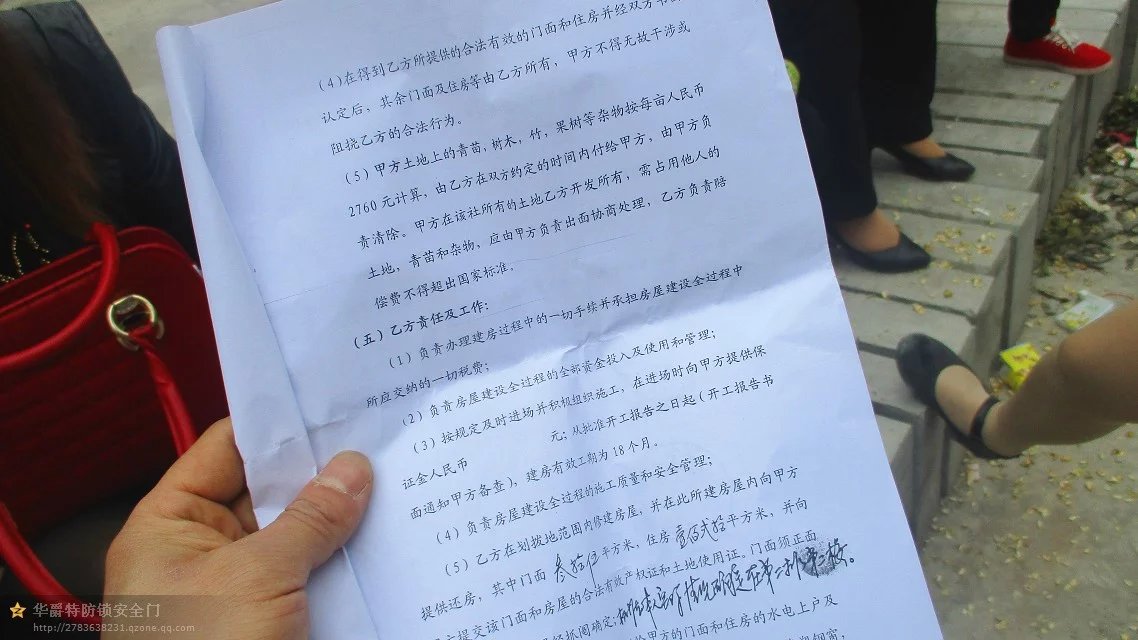 (4)在得到乙方所提供的合法有效的门面和住房并经双方书
认定后，其余门面及住房等由乙方所有，甲方不得无故干涉或
阻挠乙方的合法行为。
(5)甲方土地上的青苗，树木，竹，果树等杂物按每亩人民币
2760元计算，由乙方在双方约定的时间内付给甲方，由甲方负
责清除。甲方在该社所有的土地乙方开发所有，需占用他人的
土地，青苗和杂物，应由甲方负责出面协商处理，乙方负责赔
偿费不得超出国家标准。
(五)乙方责任及工作：
(1)负责办理建房过程中的一切手续并承担房屋建设全过程中
所应交纳的一切税费；
(2)负责房屋建设全过程的全部资金投入及使用和管理；
(3)按规定及时进场并积极组织施工，在进场时向甲方提供保
证金人民币 元；从批准开工报告之日起(开工报告书
面通知甲方备查)，建房有效工期为18个月。
(4)负责房屋建设全过程的施工质量和安全管理；
(5)乙方在划拨地范围内修建房屋，并在此所建房屋内向甲方
提供还房，其中门面 叁拾 平方米，住房 壹佰贰拾平方米，并向
方提交该门面和房屋的合法有效产权证和土地使用证。门面须正面
经抓阄确定
给甲方的门面和住房的水电上户及
华爵特防锁安全门
http://2783638231.qzone.qq.com